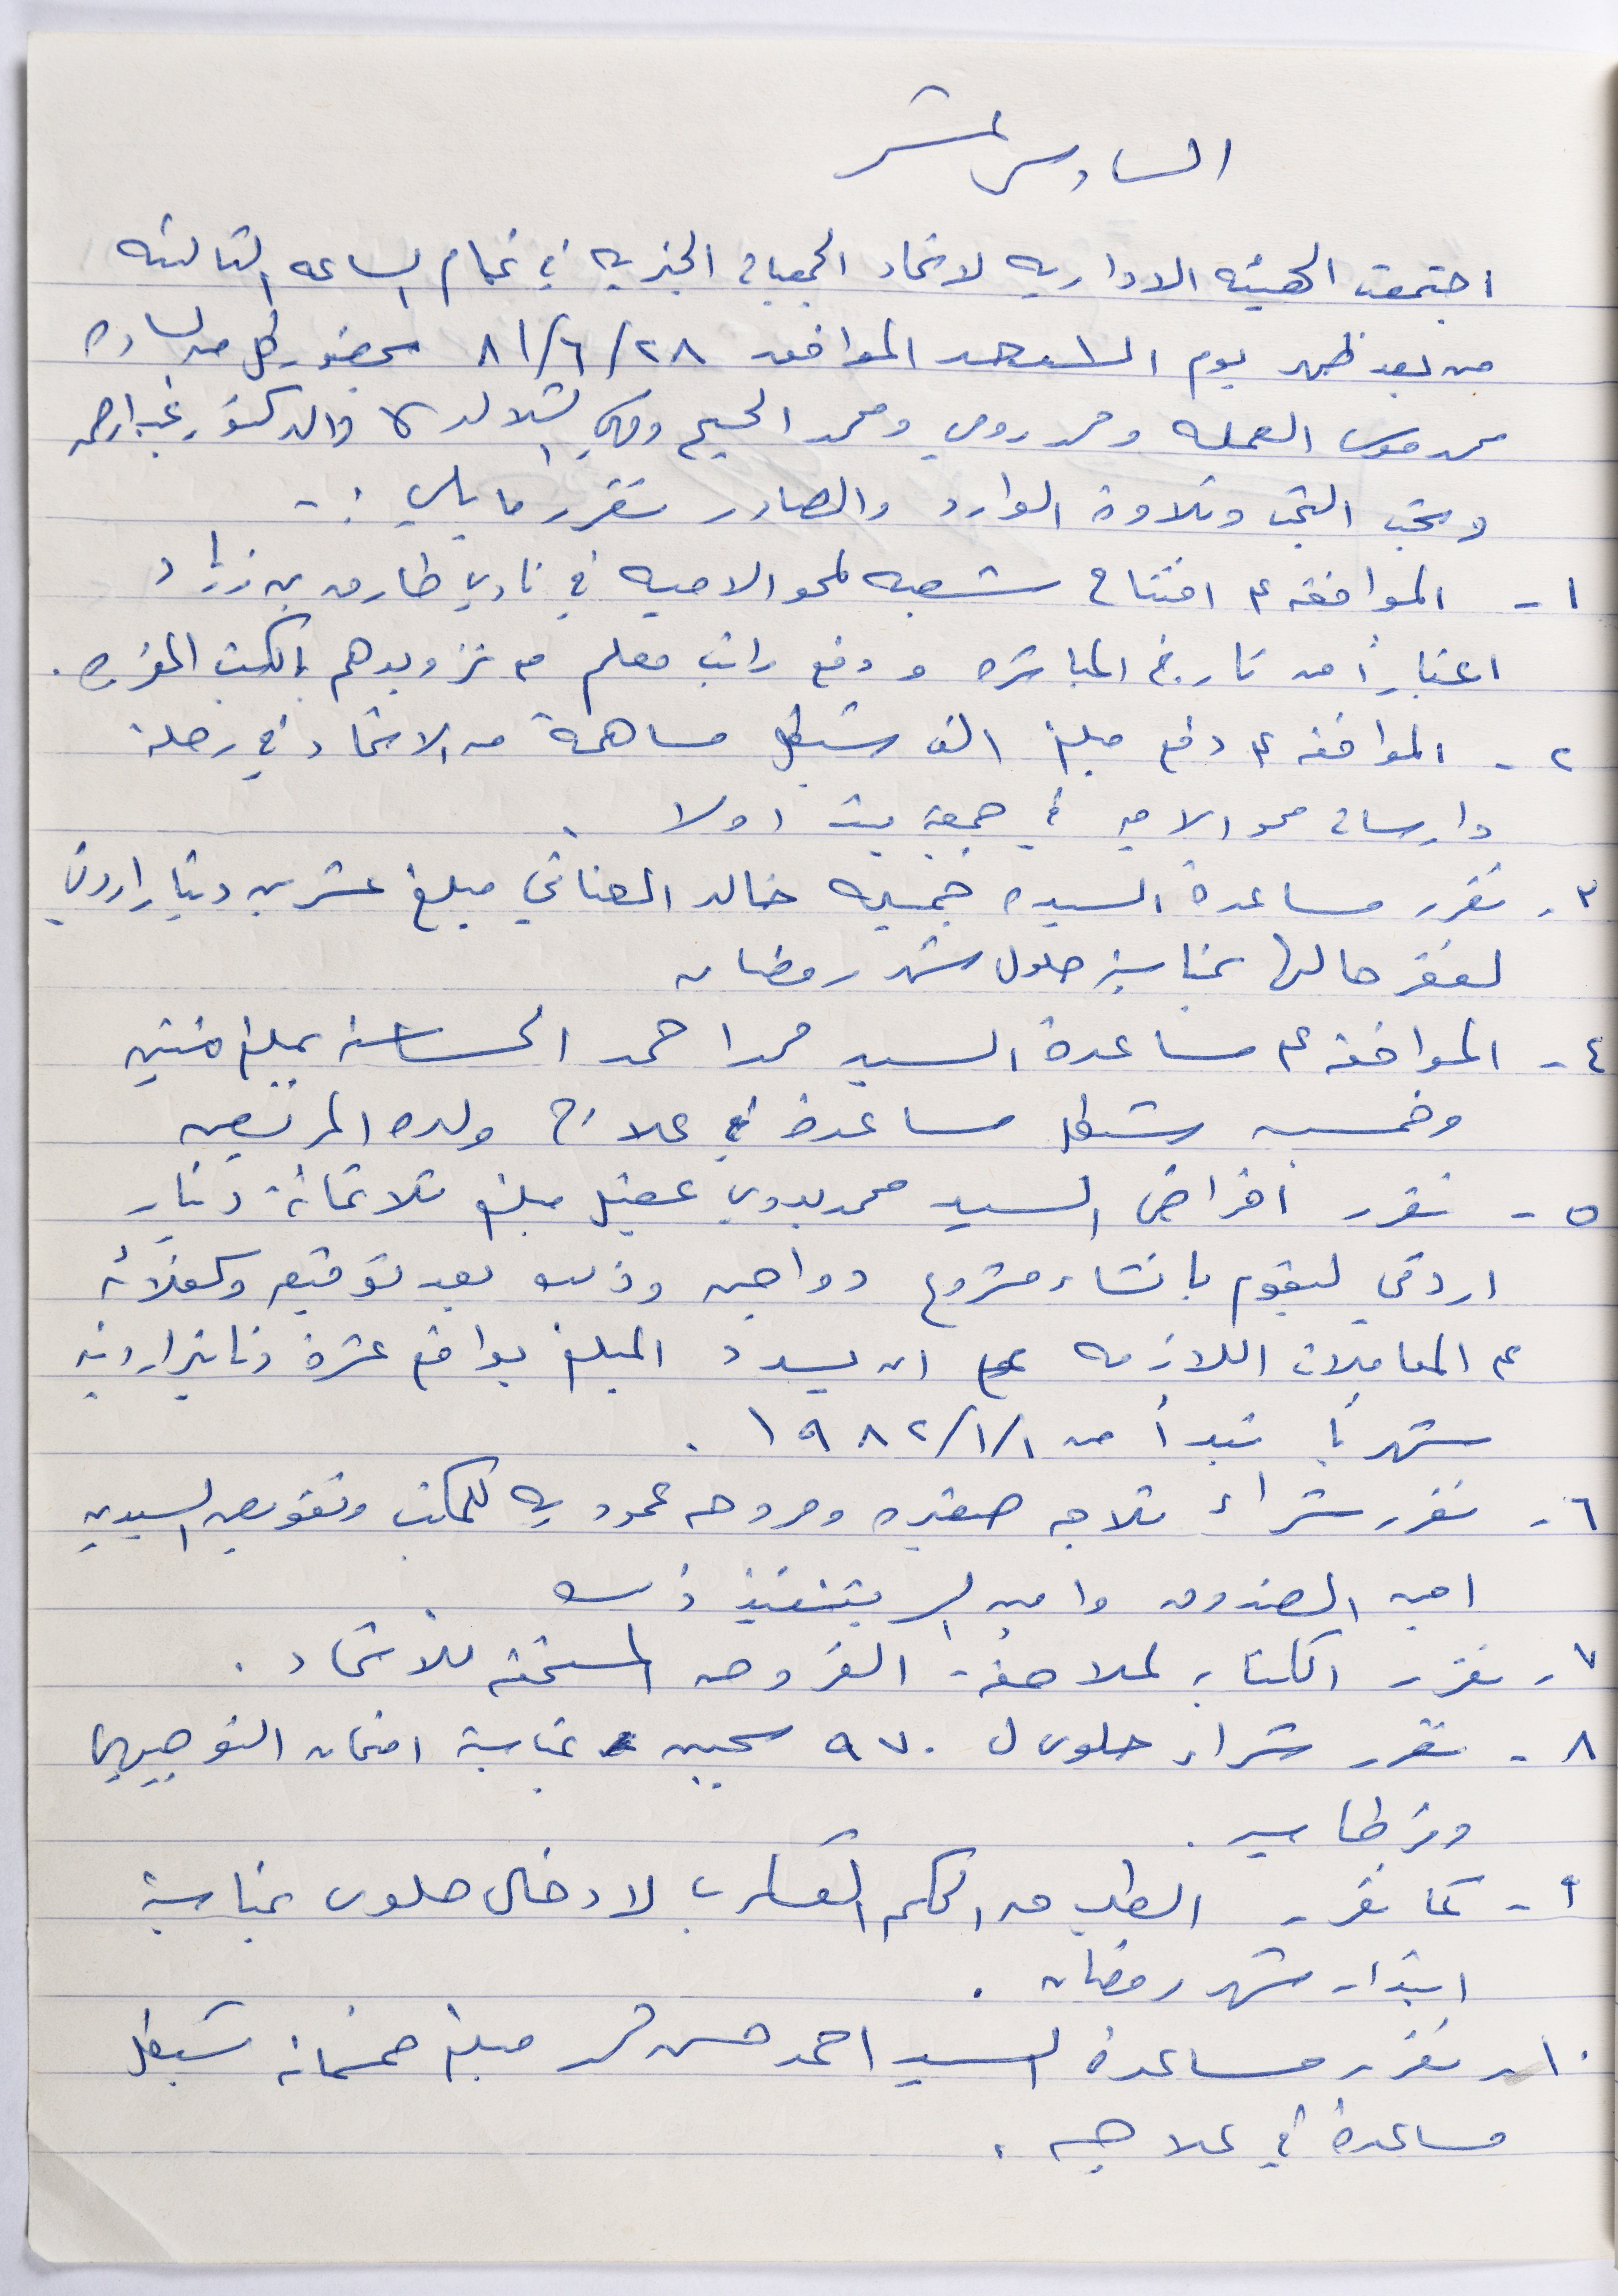 السادس عشر
اجتمعت الهيئه الاداريه لاتحاد الجمعيات الخيريه في تمام الساعه الثالثه
من بعد ظهر يوم الاحد الموافق ٨١/٦/٢٨ بحضور كل من الساده
محمد موسى العمله و ومحمد و والدكتور
وبعد البحث وتلاوة الوارد والصادر تقرر ما يلي :-
١- الموافقه على افتتاح شعبه لمحو الاميه في نادي طارق بن زياد
اعتباراً من تاريخ المباشره ودفع راتب معلم مع تزويدهم بالكتب المقرره .
٢- الموافقه على دفع مبلغ الف شيكل مساهمة من الاتحاد في رحلة
دارسات محو الاميه في جمعية بيت اولا .
٣- تقرر مساعدة السيده خالد العناتي مبلغ عشرين دينار اردني
لفقر حالها بمناسبة حلول شهر رمضان
٤- الموافقه على مساعدة السيد محمد احمد بمبلغ مئتين
وخمسين شيكل مساعدة في علاج ولده المريض
٥- تقرر اقراض السيد محمد بدوي عقيل مبلغ ثلاثمائة دينار
اردني ليقوم بانشاء مشروع دواجن وذلك بعد توقيعه وكفلائه
على المعاملات اللازمه على ان يسدد المبلغ بواقع عشرة دنانير اردنيه
شهرياً تبدأ من ١٩٨٢/١/١ .
٦- تقرر شراء ثلاجه صغيره ومروحه عموديه للمكتب وتفويض السيدين
امين الصندوق وامين السر بتنفيذ ذلك
٧- تقرر الكتابه لملاحقة القروض المستحقه للاتحاد .
٨- تقرر شراء حلوى ل ٩٧٠ سجين بمناسبة امتحان التوجيهي
وقرطاسيه .
٩- كما تقرر الطلب من الحكم العسكري لادخال حلوى بمناسبة
ابتداء شهر رمضان .
١٠- تقرر مساعدة السيد احمد حسن مبلغ خمسمائة شيكل
مساعدة في علاجه .